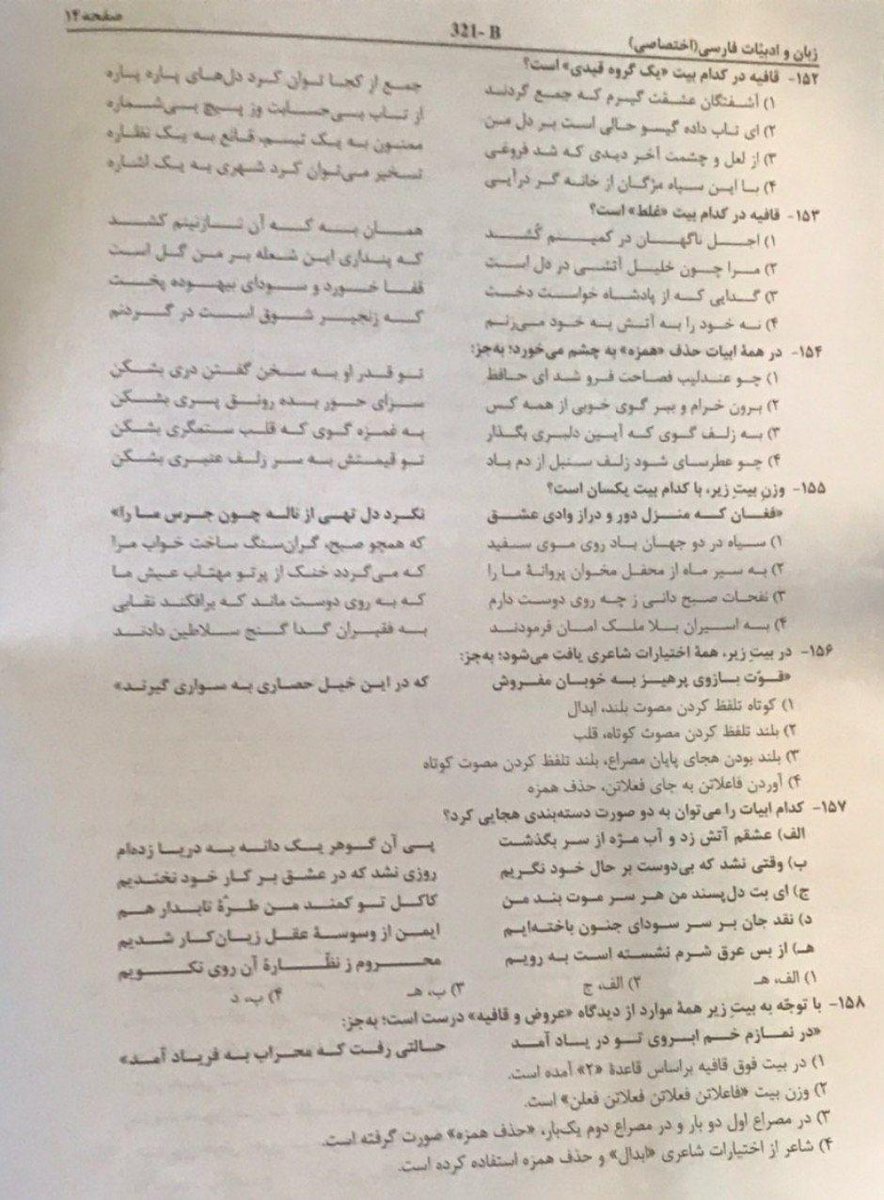 زبان و ادبیّات فارسی(اختصاصی) 321- B صفحه ۱۴
۱۵۲- قافیه در کدام بیت «یک گروه قیدی» است؟
۱) آشفتگان عشقت گیرم که جمع گردند جمع از کجا توان کرد دل‌های پاره پاره
۲) ای تاب داده گیسو حالی است بر دل من از تاب بی‌حسابت وز پیچ بی‌شماره
۳) از لعل و چشمت آخر دیدی که شد فروغی ممنون به یک تبسم، قانع به یک نظاره
۴) با این سپاه مژگان از خانه گر درآیی تسخیر می‌توان کرد شهری به یک اشاره
۱۵۳- قافیه در کدام بیت «غلط» است؟
۱) اجل ناگهان در کمینم کُشد همان به که آن نازنینم کشد
۲) مرا چون خلیل آتشی در دل است که پنداری این شعله بر من گل است
۳) گدایی که از پادشاه خواست دخت قفا خورد و سودای بیهوده پخت
۴) نه خود را به آتش به خود می‌زنم که زنجیر شوق است در گردنم
۱۵۴- در همهٔ ابیات حذف «همزه» به چشم می‌خورد؛ به‌جز:
۱) چو عندلیب فصاحت فرو شد ای حافظ تو قدر او به سخن گفتن دری بشکن
۲) برون خرام و ببر گوی خوبی از همه کس سزای حور بده رونق پری بشکن
۳) به زلف گوی که آیین دلبری بگذار به غمزه گوی که قلب ستمگری بشکن
۴) چو عطرسای شود زلف سنبل از دم باد تو قیمتش به سر زلف عنبری بشکن
۱۵۵- وزن بیتِ زیر، با کدام بیت یکسان است؟
«فغان که منزل دور و دراز وادی عشق نکرد دل تهی از ناله چون جرس ما را»
۱) سیاه در دو جهان باد روی موی سفید که همچو صبح، گران‌سنگ ساخت خواب مرا
۲) به سیر ماه از محفل مخوان پروانهٔ ما را که می‌گردد خنک از پرتو مهتاب عیش ما
۳) نفحات صبح دانی ز چه روی دوست دارم که به روی دوست ماند که برافکند نقابی
۴) به اسیران بلا ملک امان فرمودند به فقیران گدا گنج سلاطین دادند
۱۵۶- در بیتِ زیر، همهٔ اختیارات شاعری یافت می‌شود؛ به‌جز:
«قوّت بازوی پرهیز به خوبان مفروش که در این خیل حصاری به سواری گیرند»
۱) کوتاه تلفظ کردن مصوت بلند، ابدال
۲) بلند تلفظ کردن مصوت کوتاه، قلب
۳) بلند بودن هجای پایان مصراع، بلند تلفظ کردن مصوت کوتاه
۴) آوردن فاعلاتن به جای فعلاتن، حذف همزه
۱۵۷- کدام ابیات را می‌توان به دو صورت دسته‌بندی هجایی کرد؟
الف) عشقم آتش زد و آب مژه از سر بگذشت پی آن گوهر یک دانه به دریا زده‌ام
ب) وقتی نشد که بی‌دوست بر حال خود نگریم روزی نشد که در عشق بر کار خود نخندیم
ج) ای بت دل‌پسند من هر سر موت بند من کاکل تو کمند من طرّهٔ تابدار هم
د) نقد جان بر سر سودای جنون باخته‌ایم ایمن از وسوسهٔ عقل زیان‌کار شدیم
هـ) از بس عرق شرم نشسته است به رویم محروم ز نظّارهٔ آن روی نکویم
۱) الف، هـ ۲) الف، ج ۳) ب، هـ ۴) ب، د
۱۵۸- با توجّه به بیتِ زیر همهٔ موارد از دیدگاه «عروض و قافیه» درست است؛ به‌جز:
«در نمازم خم ابروی تو در یاد آمد حالتی رفت که محراب به فریاد آمد»
۱) در بیت فوق قافیه براساس قاعدهٔ «۲» آمده است.
۲) وزن بیت «فاعلاتن فعلاتن فعلاتن فعلن» است.
۳) در مصراع اول دو بار و در مصراع دوم یک‌بار، «حذف همزه» صورت گرفته است.
۴) شاعر از اختیارات شاعری «ابدال» و حذف همزه استفاده کرده است.